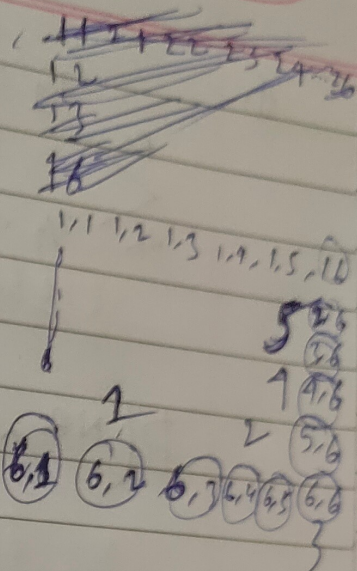 1 2
1 3
1 6
1,1 1,2 1,3 1,4, 1,5, 1,6
5 2,6
3,6
4 4,6
1
2 5,6
6,1 6,2 6,3 6,4 6,5 6,6
3